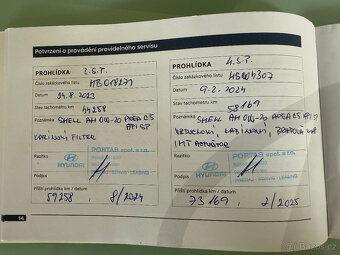 Potvrzení o provádění pravidelného servisu
PROHLÍDKA 3.S.P.
Číslo zakázkového listu
HB018271
Datum
24.8.2023
Stav tachometru km
44258
Poznámky
SHELL AH 0W-20
API SP
KABINOVÝ FILTER
Razítko
PORTAB spol. s r.o.
HYUNDAI
Podpis
Příští prohlídka km / datum
59258 8/2024
PROHLÍDKA 4.S.P.
Číslo zakázkového listu
Datum
9.2.2024
Stav tachometru km
58169
Poznámky
SHELL AH 0W-20
API SP
Razítko
PORTAB spol. s r.o.
HYUNDAI
PRODEJ - SERVIS - LEASING
Podpis
Příští prohlídka km / datum
73169 2/2025
14